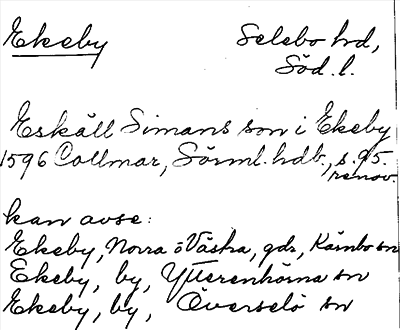 Ekeby Selebo hd,
Söd. l.
Eskäll Simans son i Ekeby
1596 Collmar, Sörml. hdb., s. 95.
renov.
kan avse:
Ekeby, Norra o Västra, gdr, Kärnbo sn
Ekeby, by, Ytterenhörna sn
Ekeby, by, Överselö sn